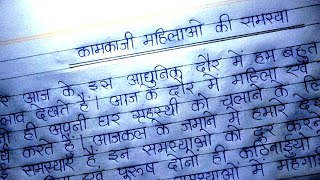 कामकाजी महिलाओ की समस्या
आज के इस आधुनिक दौर में हम बहुत
देखते हैं। आज के दौर में महिला एवं
ही अपनी घर गृहस्थी को चलाने के लि
करते हैं। आजकल के जमाने में हमारे
समस्याएँ हैं इन समस्याओं को दूर करन
पुरूष दोनो ही कठिनाईया
समस्याओ में महंगा